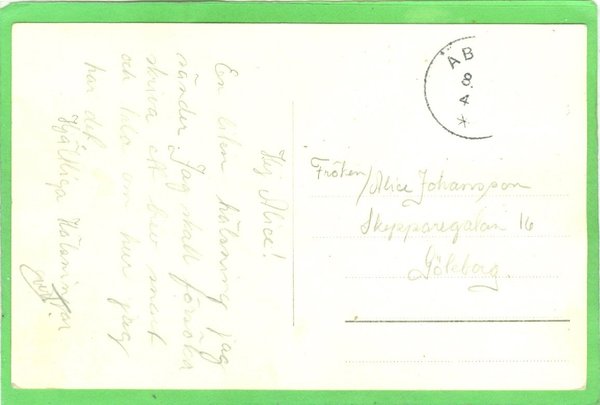 Hej Alice!
En liten hälsning jag
sänder Jag skall försöka
skriva ett brev snart
och tala om hur jag
har det.
Hjärtliga Hälsningar
ÄB
8 4
Fröken/Alice Johansson
Skepparegatan 16
Göteborg.